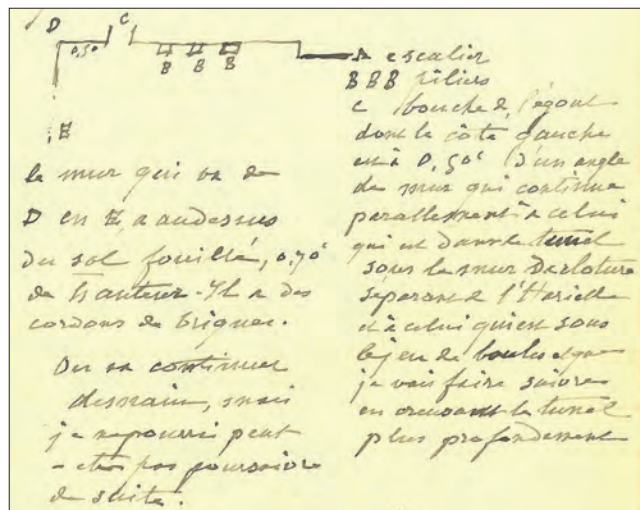 D C
0,50
B B B
E
A escalier
BBB piliers
C bouche de l'égout
dont le côté gauche
est à 0,50c d'un angle
de mur qui continue
parallement à celui
qui est dans le tunnel
sous le mur de cloture
séparant de l'Harielle
et à celui qui est sous
le jeu de boules et que
je vais faire suivre
en creusant le tunnel
plus profondement
le mur qui va de
D en E, a audessus
du sol fouillé, 0.70c
de hauteur - Il a des
cordons de briques.
On va continuer
demain, mais
je ne pourrai peut
-etre pas poursuivre
de suite.